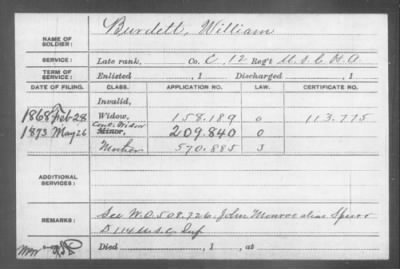 NAME OF SOLDIER: Burdett, William
SERVICE: Late rank, Co. C, 12 Regt U.S.C.H.A.
TERM OF SERVICE: Enlisted , 1 Discharged , 1
DATE OF FILING. CLASS. APPLICATION NO. LAW. CERTIFICATE NO.
Invalid,
1868 Feb 28 Widow, 158.189 0 113.775
1873 May 26 Cont. Widow Minor, 209.840 0
Mother 570.885 3
ADDITIONAL SERVICES:
REMARKS: See W.O. 508.726. John Monroe alias
D 114 U.S.C. Inf
Died , 1 , at